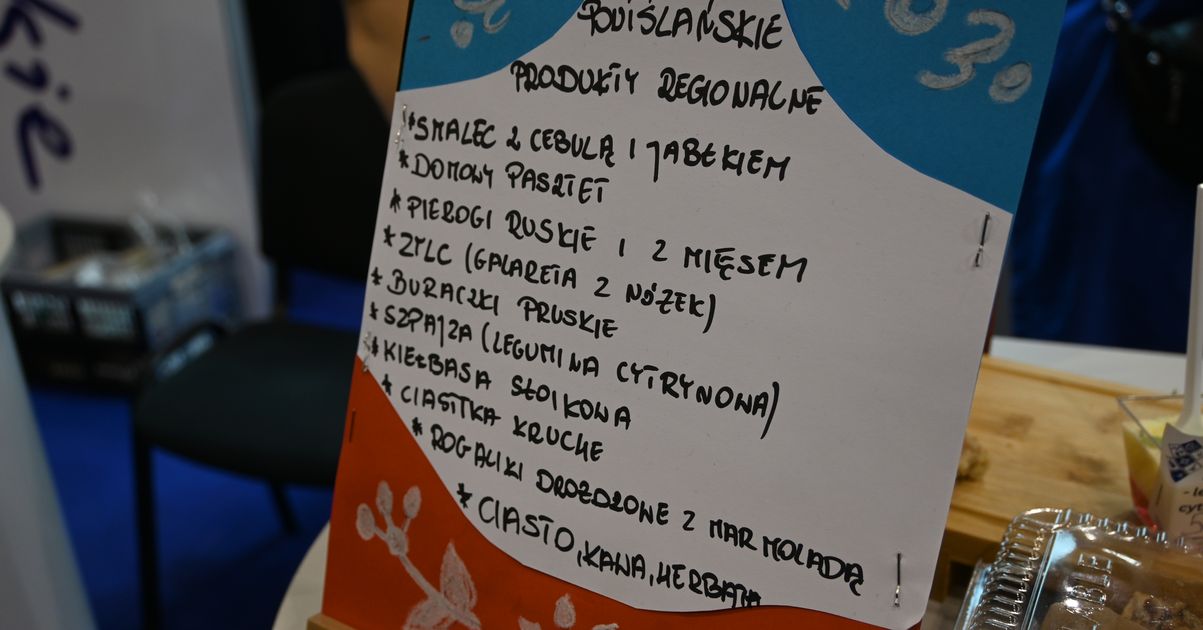 kie
03.
POWIŚLAŃSKIE
PRODUKTY REGIONALNE
*SMALEC Z CEBULĄ I JABŁKIEM
*DOMOWY PASZTET
*PIEROGI RUSKIE I Z MIĘSEM
*ZYLC (GALARETA Z NÓŻEK)
*BURACZKI PRUSKIE
*SZPAJZA (LEGUMINA CYTRYNOWA)
*KIEŁBASA SŁOIKOWA
*CIASTKA KRUCHE
*ROGALIKI DROZDZOWE Z MARMOLADĄ
*CIASTO, KAWA, HERBATA